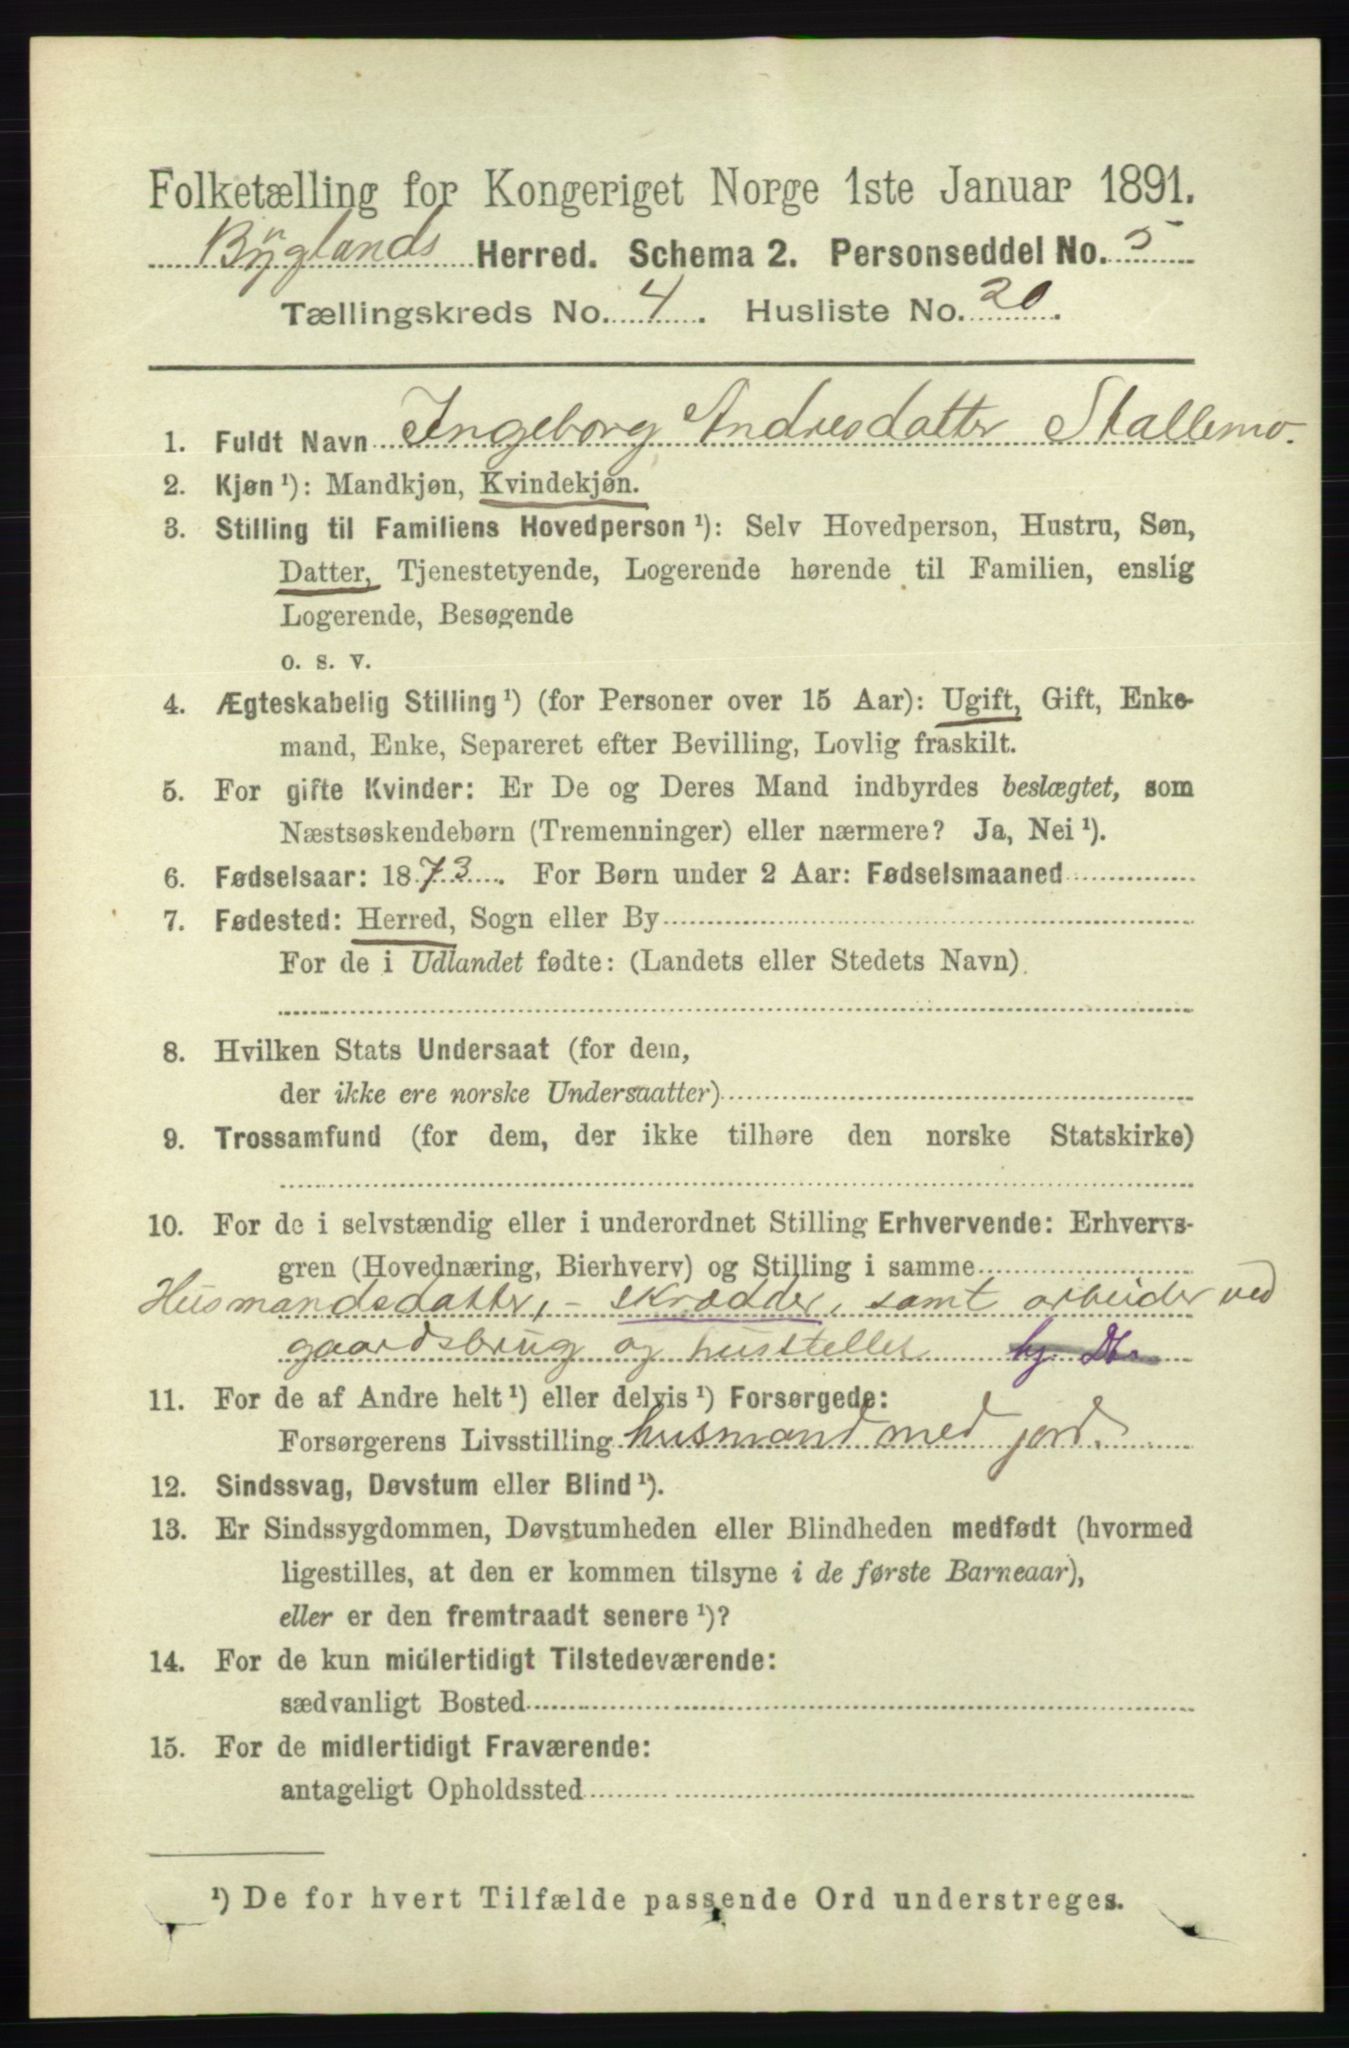 Folketælling for Kongeriget Norge 1ste Januar 1891.
Byglands Herred. Schema 2. Personseddel No. 5
Tællingskreds No. 4. Husliste No. 20.
1. Fuldt Navn Ingeborg Andresdatter Skallemo.
2. Kjøn¹): Mandkjøn, Kvindekjøn.
3. Stilling til Familiens Hovedperson¹): Selv Hovedperson, Hustru, Søn,
Datter, Tjenestetyende, Logerende hørende til Familien, enslig
Logerende, Besøgende
o. s. v.
4. Ægteskabelig Stilling¹) (for Personer over 15 Aar): Ugift, Gift, Enke-
mand, Enke, Separeret efter Bevilling, Lovlig fraskilt.
5. For gifte Kvinder: Er De og Deres Mand indbyrdes beslægtet, som
Næstsøskendebørn (Tremenninger) eller nærmere? Ja, Nei¹).
6. Fødselsaar: 1873. For Børn under 2 Aar: Fødselsmaaned
7. Fødested: Herred, Sogn eller By
For de i Udlandet fødte: (Landets eller Stedets Navn)
8. Hvilken Stats Undersaat (for dem,
der ikke ere norske Undersaatter)
9. Trossamfund (for dem, der ikke tilhøre den norske Statskirke)
10. For de i selvstændig eller i underordnet Stilling Erhvervende: Erhvervs-
gren (Hovednæring, Bierhverv) og Stilling i samme
Husmandsdatter, - skrædder, samt arbeider ved
gaardsbrug og husstellet
11. For de af Andre helt¹) eller delvis¹) Forsørgede:
Forsørgerens Livsstilling husmand med jord.
12. Sindssvag, Døvstum eller Blind¹).
13. Er Sindssygdommen, Døvstumheden eller Blindheden medfødt (hvormed
ligestilles, at den er kommen tilsyne i de første Barneaar),
eller er den fremtraadt senere¹)?
14. For de kun midlertidigt Tilstedeværende:
sædvanligt Bosted
15. For de midlertidigt Fraværende:
antageligt Opholdssted
¹) De for hvert Tilfælde passende Ord understreges.